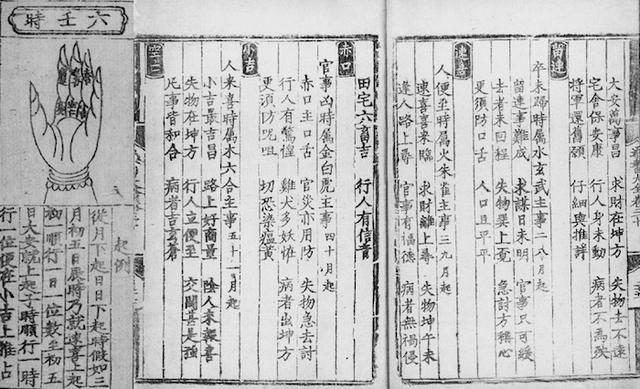 大安萬事昌　求財在坤方　失物去不遠
宅舍保安康　行人身未動　病者不為殃
將軍還舊願　仔細與推詳
留連
卒未歸時屬水玄武主事二八月起
留連事難成　求謀日未明　官事只可緩
去者未回程　失物巽上覓　急討方稱心
更須防口舌　人口且平平
速喜
人便至時屬火朱雀主事三九月起
速喜喜來臨　求財離上尋　失物坤午未
逢人路上尋　官事有福德　病者無禍侵
田宅六畜吉　行人有信音
赤口
官事凶時屬金白虎主事四十月起
赤口主口舌　官災亦用防　失物急去討
行人有驚惶　雞犬多妖怪　病者出坤方
更須防咒咀　切恐染瘟黃
小吉
人來喜時屬木六合主事五十一月起
小吉最吉昌　路上好商量　陰人來報喜
失物在坤方　行人立便至　交關甚是強
凡事皆和合　病者告穹蒼
空亡
六壬時
起例
從月下起日日下起時假如三
月初五日辰時乃就速喜上起
初一順行一日一位數至初五
日大安就上起子時順行一時
行一位便在小吉上推占